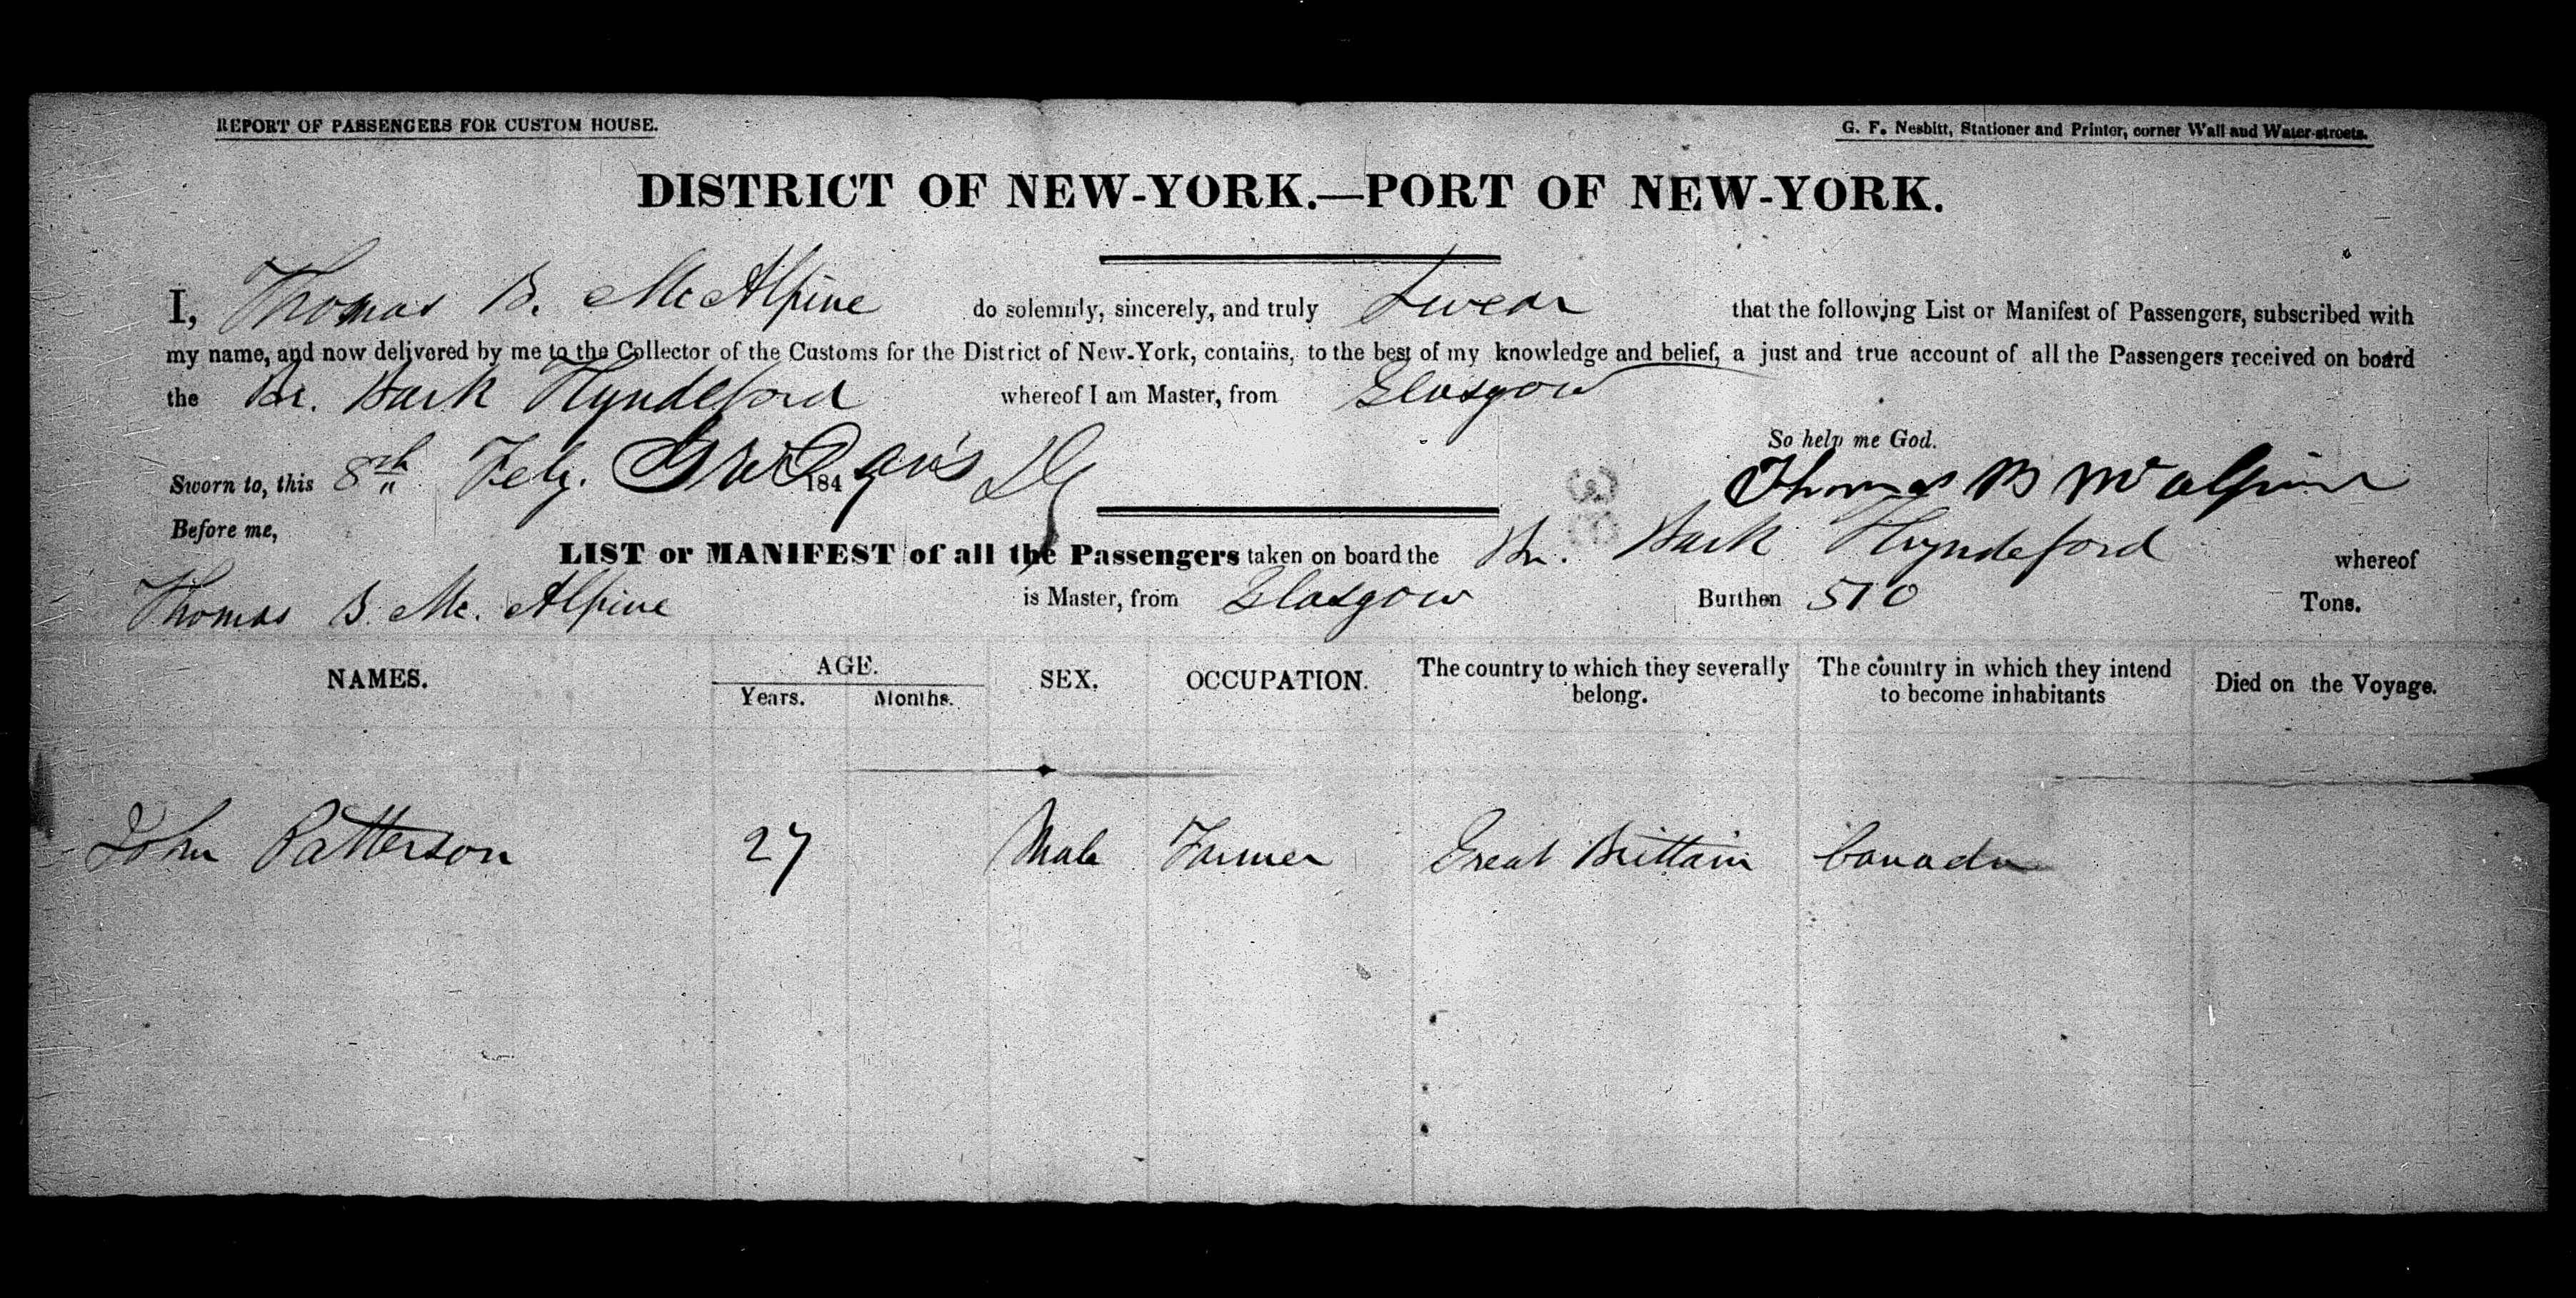 REPORT OF PASSENGERS FOR CUSTOM HOUSE.
G. F. Nesbitt, Stationer and Printer, corner Wall and Water-streets.
DISTRICT OF NEW-YORK.—PORT OF NEW-YORK.
I, Thomas B. McAlpine do solemnly, sincerely, and truly Swear that the following List or Manifest of Passengers, subscribed with
my name, and now delivered by me to the Collector of the Customs for the District of New-York, contains, to the best of my knowledge and belief, a just and true account of all the Passengers received on board
the Br. Bark Hyndeford whereof I am Master, from Glasgow
So help me God.
Sworn to, this 8th Feby. 184
Thomas B McAlpine
Before me,
LIST or MANIFEST of all the Passengers taken on board the Br. Bark Hyndeford whereof
Thomas B. Mc. Alpine is Master, from Glasgow Burthen 510 Tons.
NAMES. AGE. Years. Months. SEX. OCCUPATION. The country to which they severally belong. The country in which they intend to become inhabitants Died on the Voyage.
John Patterson 27 Male Farmer Great Brittain Canada